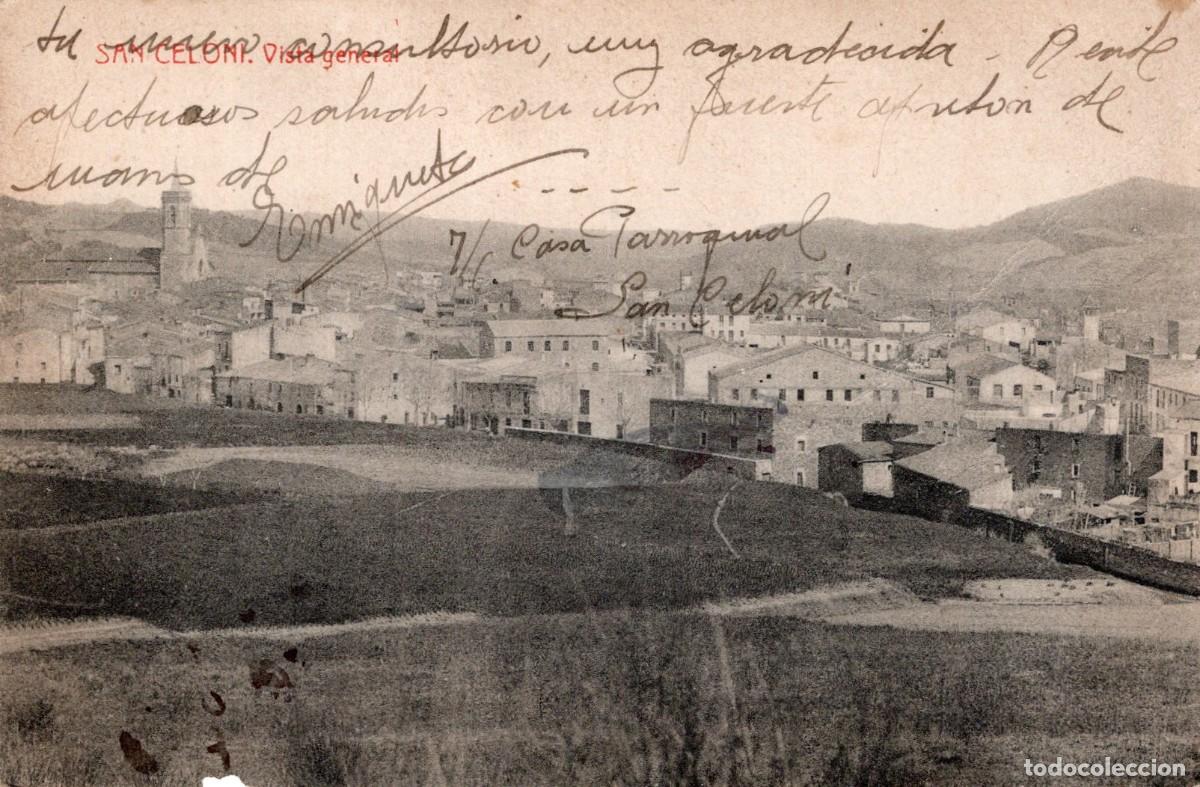 tu nuevo consultorio, muy agradecida - Recibe
SAN CELONI. Vista general
afectuosos saludos con un fuerte apreton de
manos de
Enriqueta
7/c Casa Parroquial
San Celoni
todocoleccion